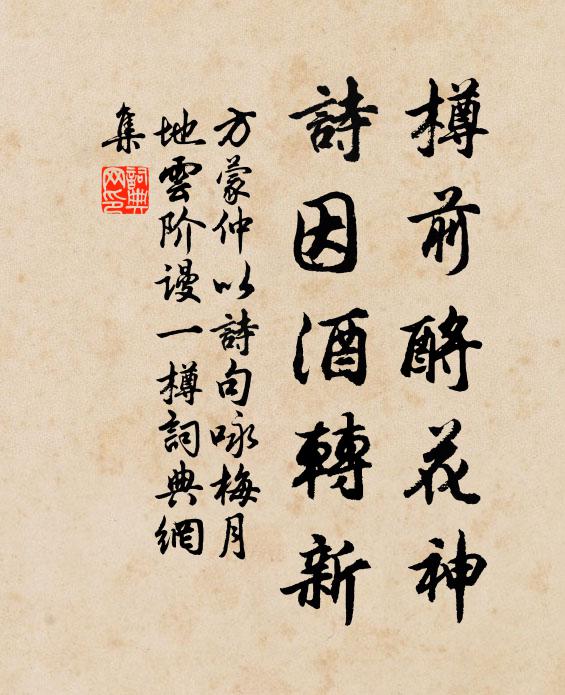 樽前酹花神
詩因酒轉新
方蒙仲以詩句咏梅月
地雲阶谩一樽詞典網
集
詞典
网印